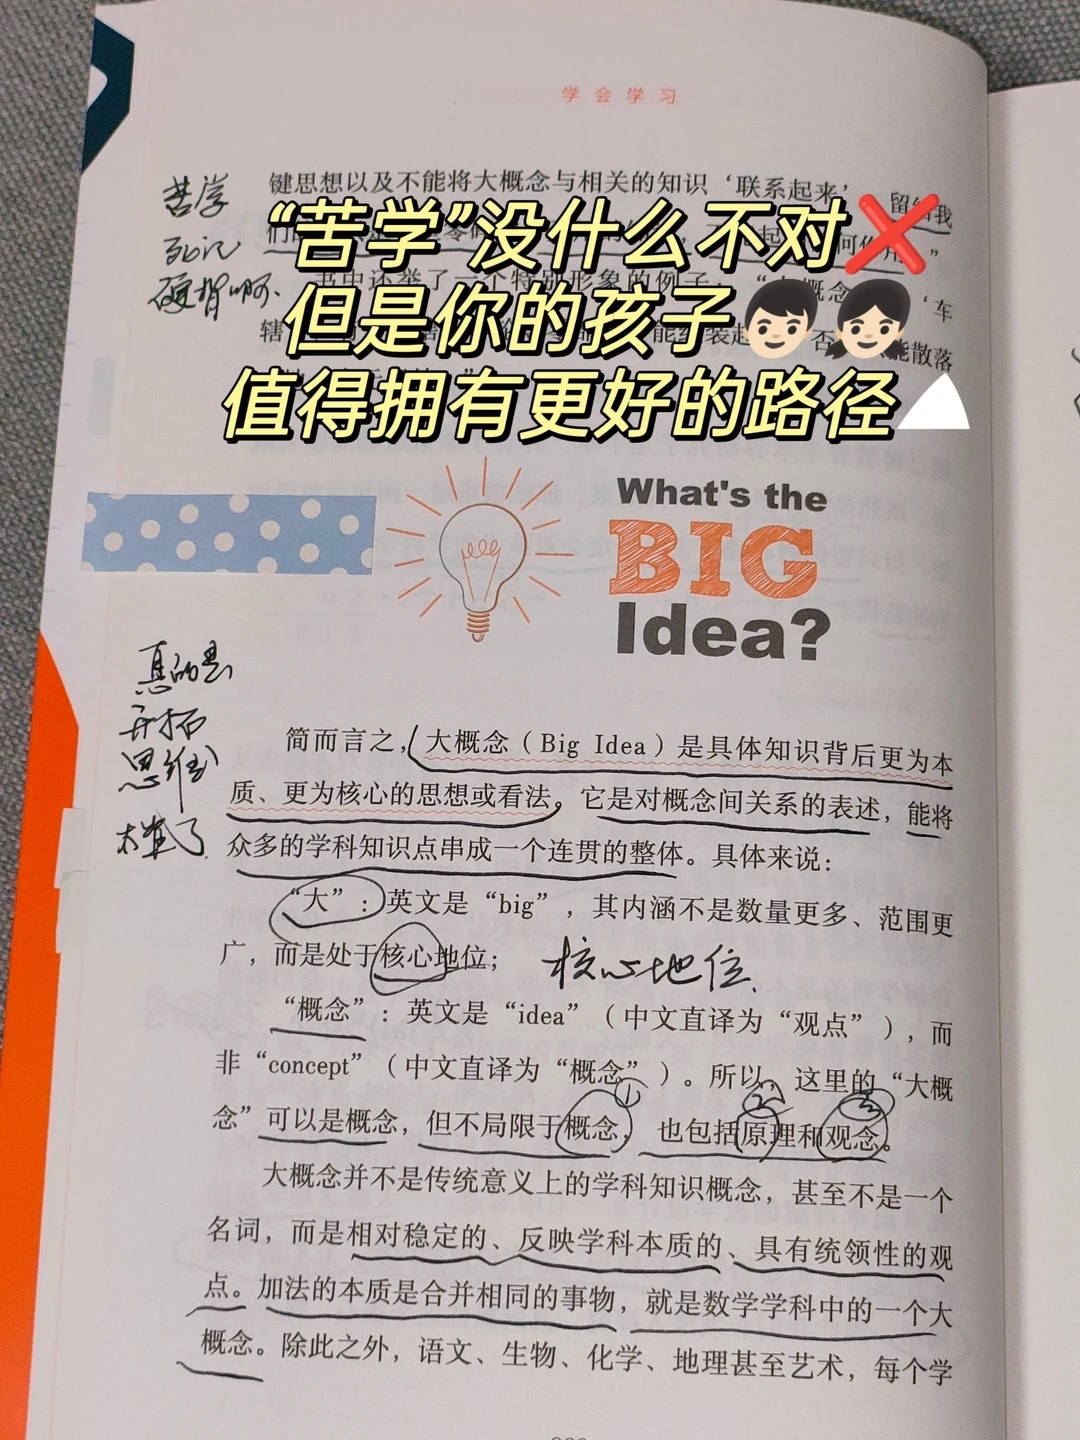 学会学习
键思想以及不能将大概念与相关的知识‘联系起来’，留给我
苦学
死记
硬背啊.
“苦学”没什么不对❌
但是你的孩子👦🏻👧🏻
值得拥有更好的路径
书中还举了一个特别形象的例子
‘车
辖
能散落
What's the
BIG
Idea?
真的是
开拓
思维
太难了.
简而言之，大概念（Big Idea）是具体知识背后更为本
质、更为核心的思想或看法。它是对概念间关系的表述，能将
众多的学科知识点串成一个连贯的整体。具体来说：
“大”：英文是“big”，其内涵不是数量更多、范围更
广，而是处于核心地位；
核心地位.
“概念”：英文是“idea”（中文直译为“观点”），而
非“concept”（中文直译为“概念”）。所以，这里的“大概
① ② ③
念”可以是概念，但不局限于概念，也包括原理和观念。
大概念并不是传统意义上的学科知识概念，甚至不是一个
名词，而是相对稳定的、反映学科本质的、具有统领性的观
点。加法的本质是合并相同的事物，就是数学学科中的一个大
概念。除此之外，语文、生物、化学、地理甚至艺术，每个学